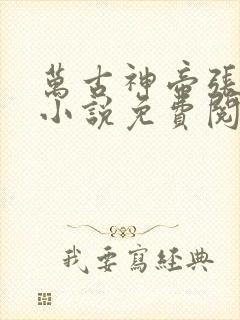 萬古神帝張
小說免費閱
我要寫經典